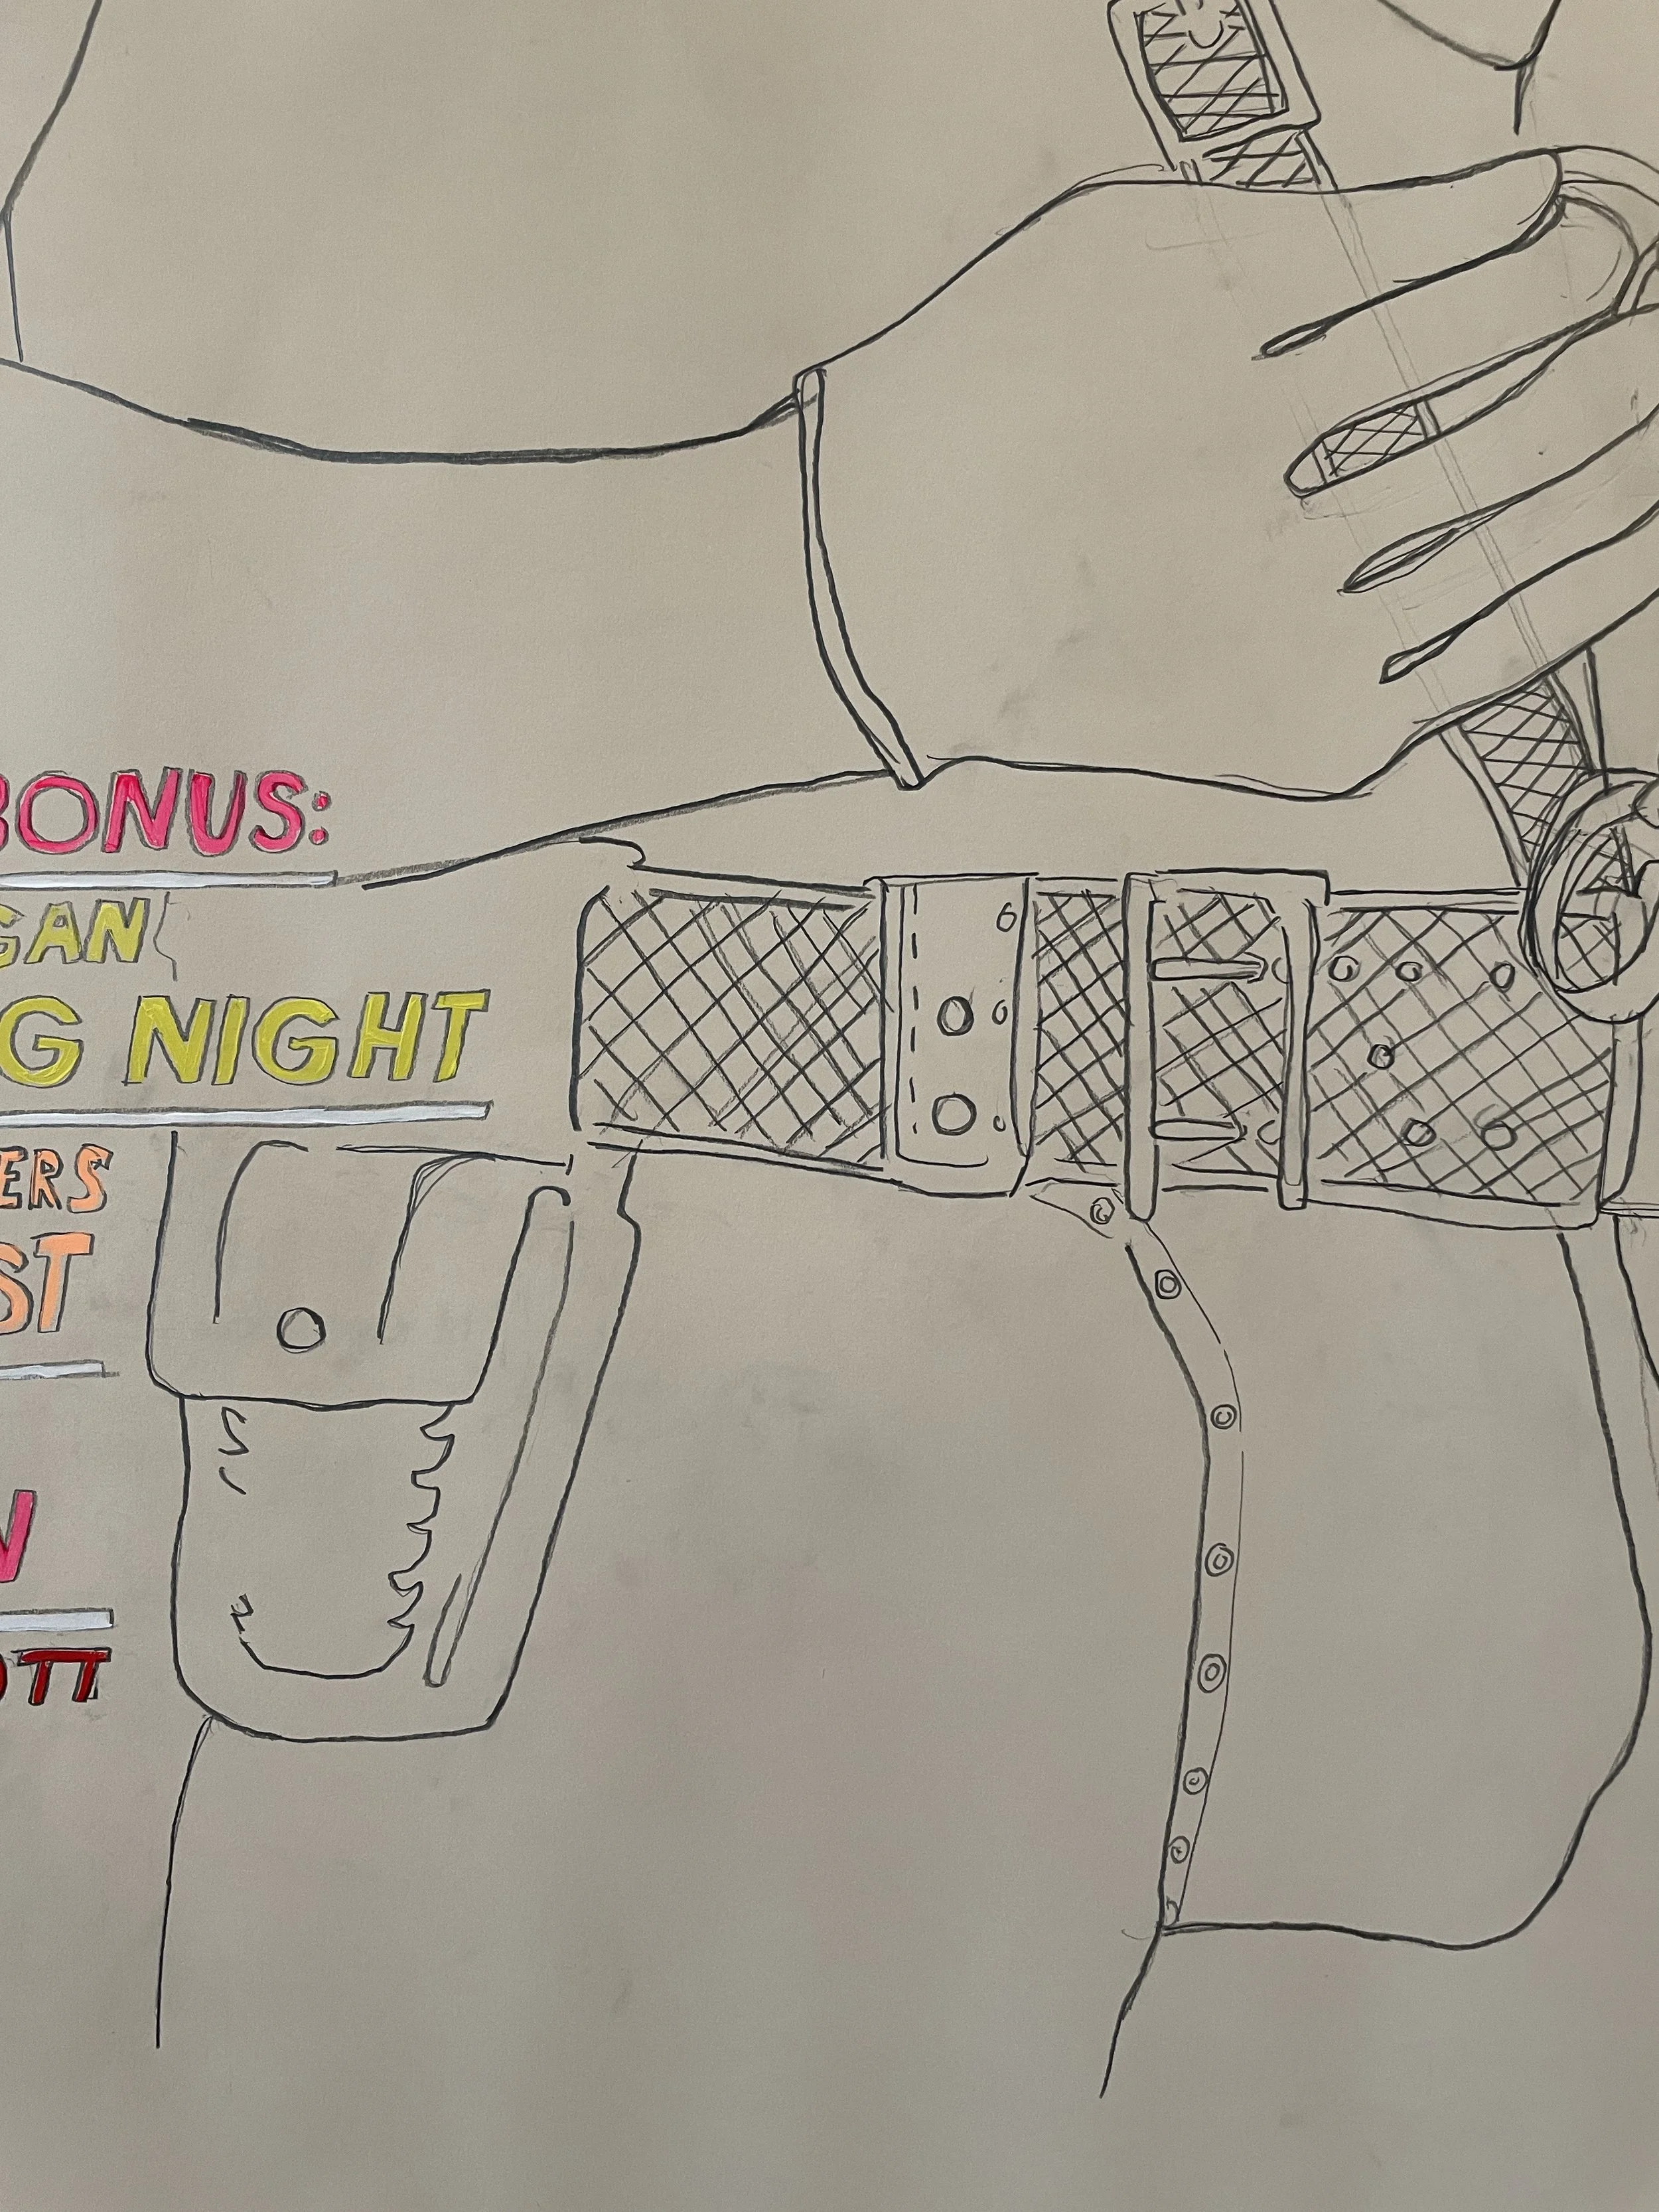 BONUS:
GAN
G NIGHT
ERS
ST
N
OTT